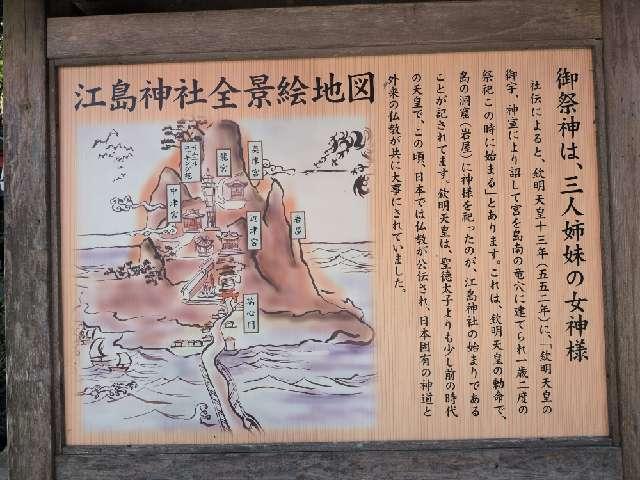 江島神社全景絵地図
御祭神は、三人姉妹の女神様
社伝によると、欽明天皇十三年(五五二年)に、「欽明天皇の
御宇、神宣により詔して宮を島南の竜穴に建てられ一歳二度の
祭祀この時に始まる」とあります。これは、欽明天皇の勅命で、
島の洞窟(岩屋)に神様を祀ったのが、江島神社の始まりである
ことが記されてます。欽明天皇は、聖徳太子よりも少し前の時代
の天皇で、この頃、日本では仏教が公伝され、日本固有の神道と
外来の仏教が共に大事にされていました。
奥津宮
龍宮
中津宮
辺津宮
岩屋